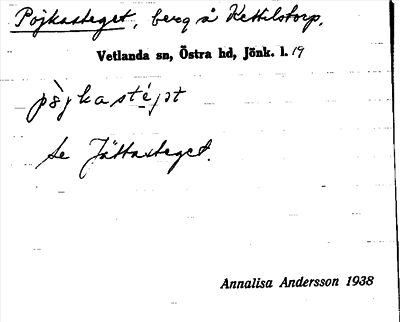 Pojkasteget, berg å Kettilstorp.
Vetlanda sn, Östra hd, Jönk. l. 19
påjkastéjet
se Jättasteget.
Annalisa Andersson 1938